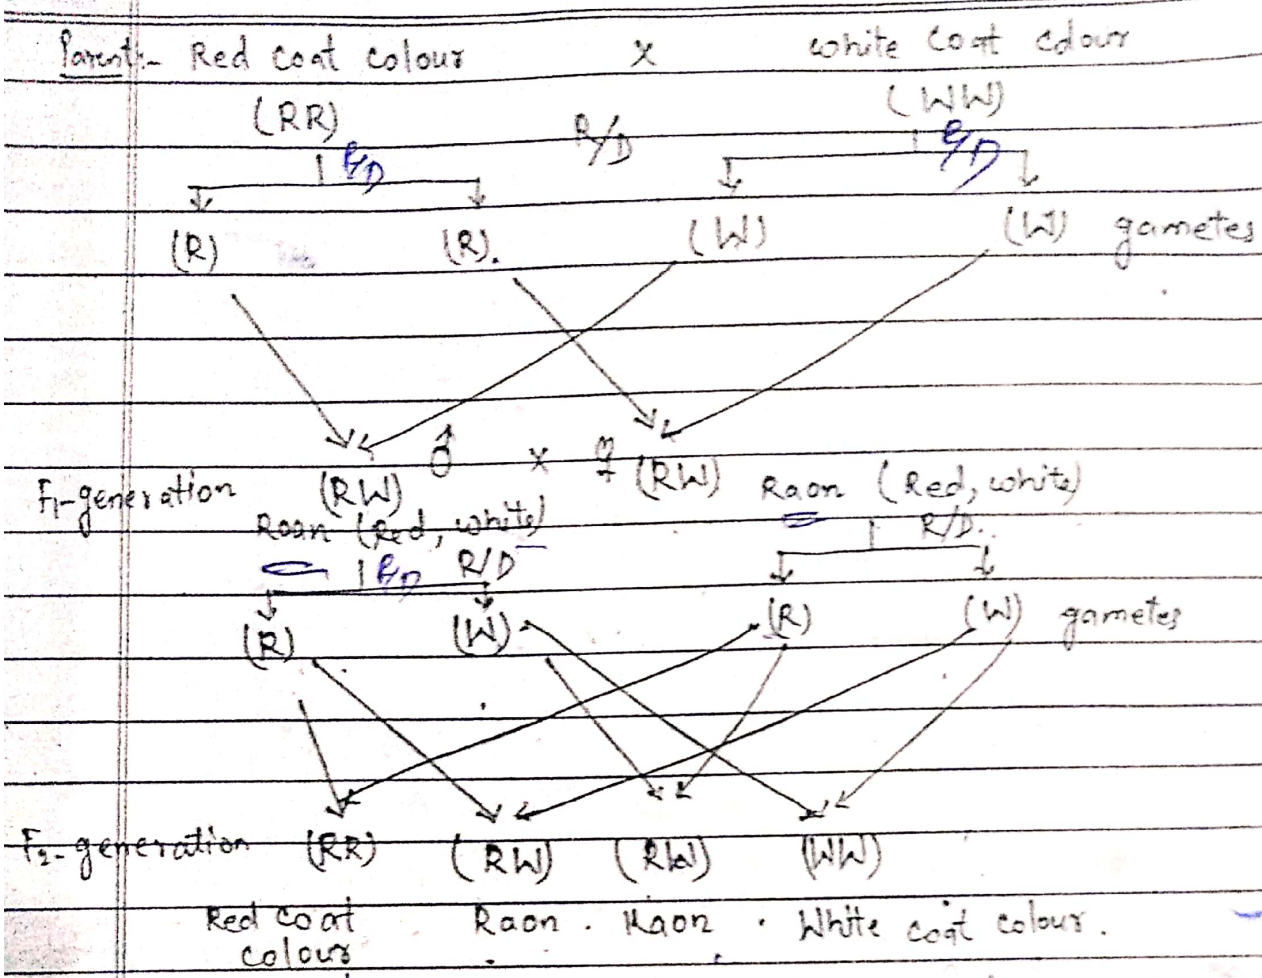 Parent:- Red coat colour × white coat colour
(RR) (WW)
R/D R/D R/D
(R) (R). (W) (W) gametes
F1-generation (RW) ♂ × ♀ (RW) Raon (Red, white)
Roan (Red, white) R/D.
R/D R/D
(R) (W) (R) (W) gametes
F2-generation (RR) (RW) (RW) (WW)
Red coat Raon . Raon . White coat colour.
colour